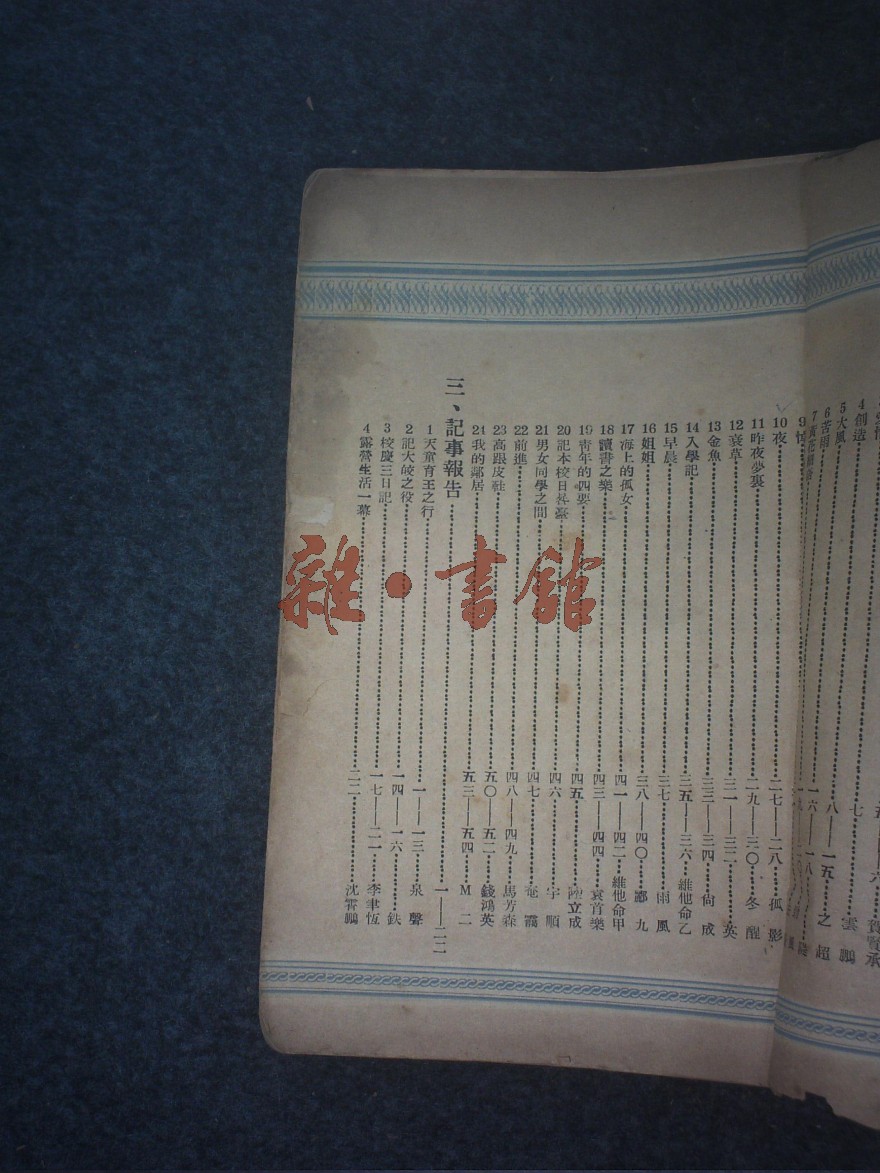 4 創造 七 雲鵬
5 大風 八——一五 之超
6 苦雨 一六——一八
10 夜 二七——二八 孤影
11 昨夜夢裏 二九——三〇 冬醒
12 衰草 三一——三二 英
13 金魚 三三——三四 尙成
14 入學記 三五——三六 維他命乙
15 早晨 三七 雨風
16 姐姐 三八——四〇 鄒九
17 海上的孤女 四一——四二 維他命甲
18 讀書之樂 四三——四四 袁首樂
19 靑年的四要 四五 陸立成
20 記本校日 四六 宇順
21 男女同學之間 四七 奄靄
22 前進 四八——四九 馬芳森
23 高跟皮鞋 五〇——五二 錢鴻英
24 我的鄰居 五三——五四 M二
三、記事報告 一——二二
1 天童育王之行 一——一三 泉聲
2 記大皎之役 一四——一六 鉄
3 校慶三日記 一七——二一 李聿恆
4 露營生活一幕 二二 沈霄鵬
雜·書館